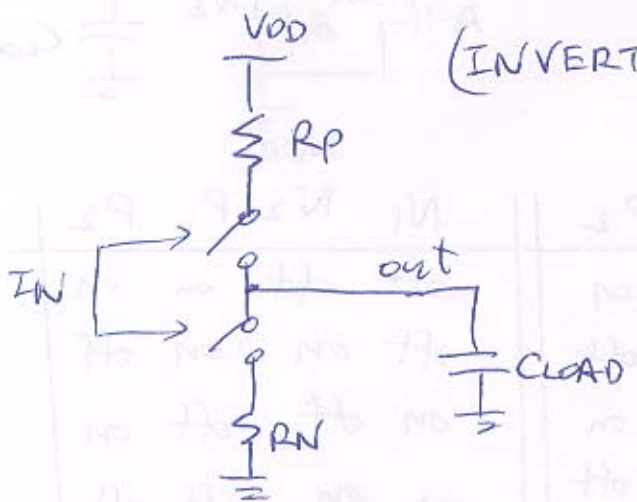 VDD
(INVERT
Rp
IN
out
CLOAD
RN